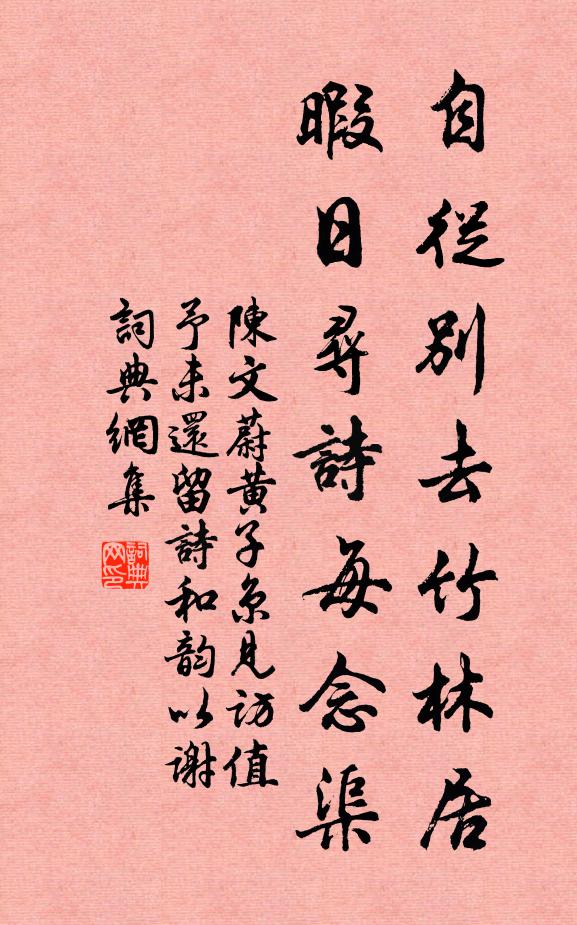 自從別去竹林居
暇日尋詩每念渠
陳文蔚黃子京見訪值
予未還留詩和韵以謝
詞典網集
詞典网印